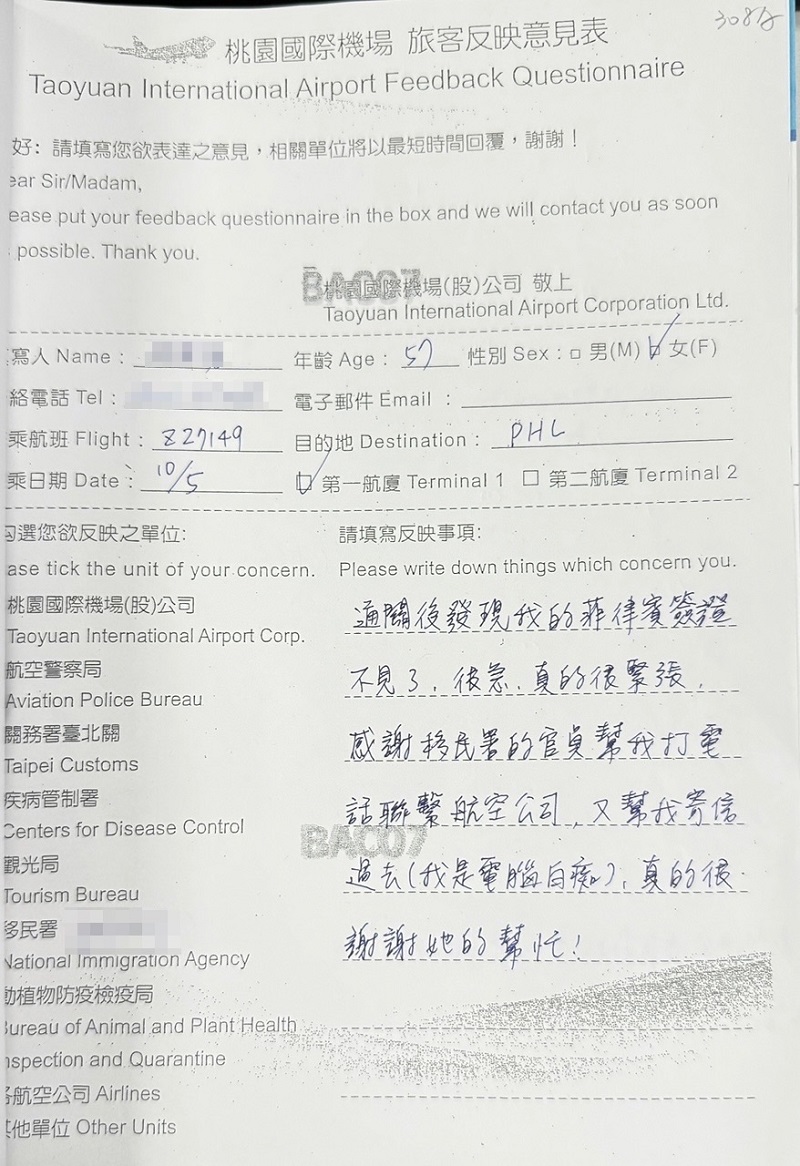 308台
桃園國際機場 旅客反映意見表
Taoyuan International Airport Feedback Questionnaire
好: 請填寫您欲表達之意見，相關單位將以最短時間回覆，謝謝！
ear Sir/Madam,
ease put your feedback questionnaire in the box and we will contact you as soon
possible. Thank you.
BAC07
桃園國際機場(股)公司 敬上
Taoyuan International Airport Corporation Ltd.
寫人 Name :
年齡 Age : 57 性別 Sex : □ 男(M) ☑ 女(F)
絡電話 Tel : 電子郵件 Email :
乘航班 Flight : Z27149 目的地 Destination : PHL
乘日期 Date : 10/5 ☑ 第一航廈 Terminal 1 □ 第二航廈 Terminal 2
勾選您欲反映之單位:
ase tick the unit of your concern.
桃園國際機場(股)公司
Taoyuan International Airport Corp.
航空警察局
Aviation Police Bureau
關務署臺北關
Taipei Customs
疾病管制署
Centers for Disease Control
觀光局
Tourism Bureau
移民署
National Immigration Agency
動植物防疫檢疫局
Bureau of Animal and Plant Health
nspection and Quarantine
各航空公司 Airlines
其他單位 Other Units
請填寫反映事項:
Please write down things which concern you.
通關後發現我的菲律賓簽證
不見了，很急，真的很緊張，
感謝移民署的官員幫我打電
話聯繫航空公司，又幫我寄信
過去(我是電腦白痴)，真的很
謝謝她的幫忙！
BAC07